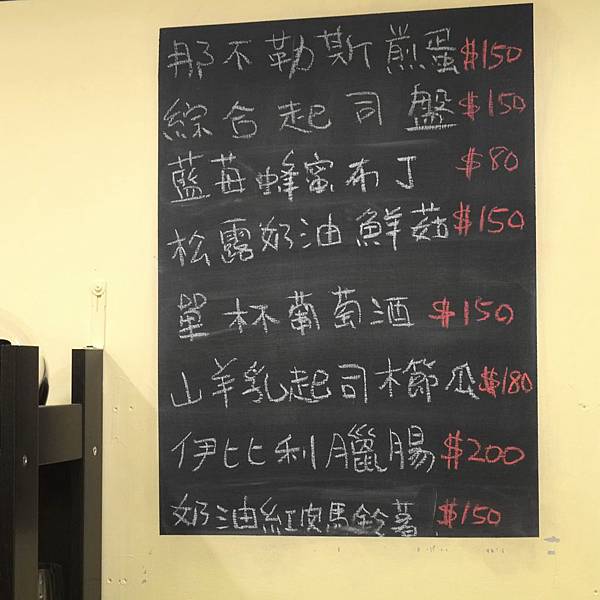 那不勒斯煎蛋 $150
綜合起司盤 $150
藍莓蜂蜜布丁 $80
松露奶油鮮菇 $150
單杯葡萄酒 $150
山羊乳起司木節瓜 $180
伊比利臘腸 $200
奶油紅皮馬鈴薯 $150